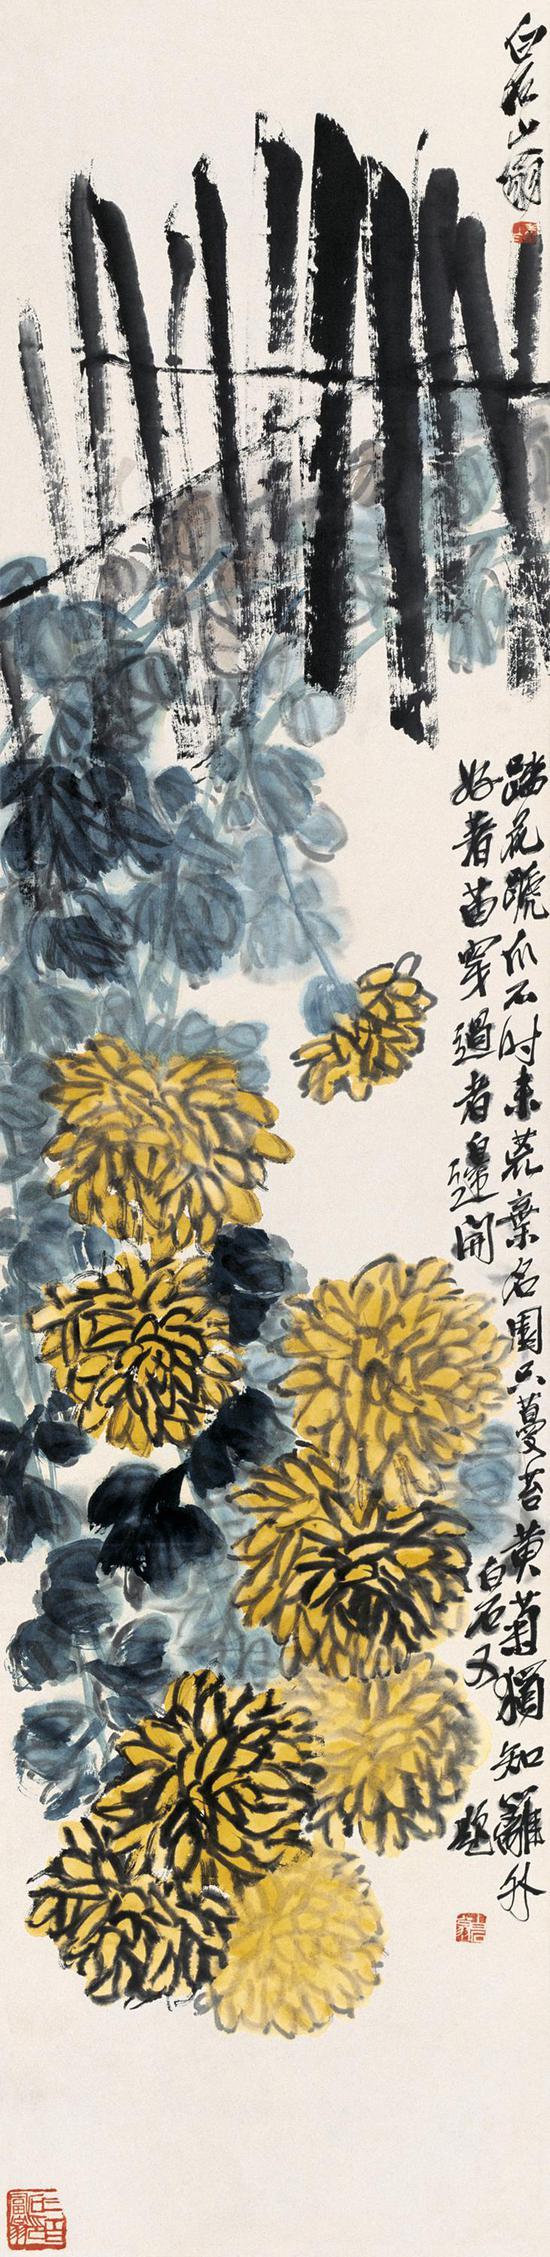 白石山翁
踏花號爪不时来荒弃名園只蔓苔黄菊猶知籬外
好着苗穿過者邊開
白石又
題